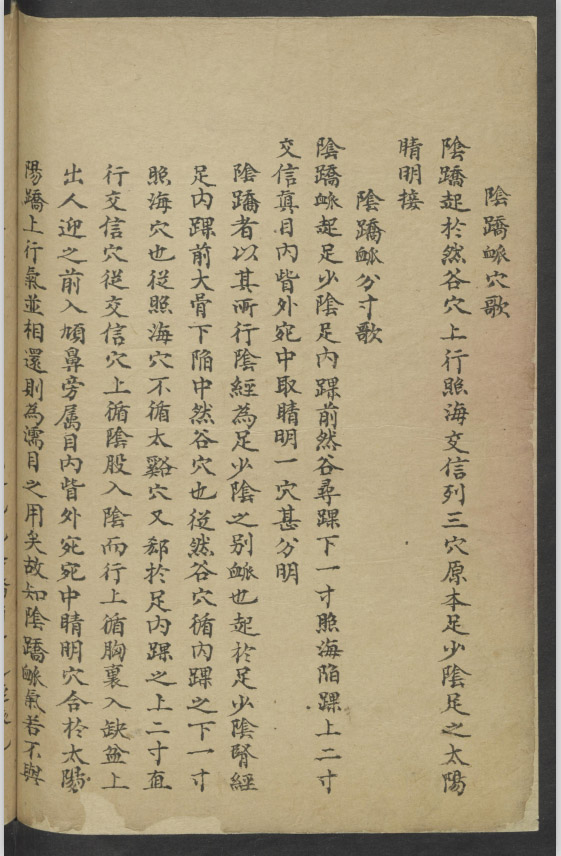 陰蹻䘑穴歌
陰蹻起於然谷穴上行照海交信列三穴原本足少陰足之太陽
睛明接
陰蹻䘑分寸歌
陰蹻䘑起足少陰足內踝前然谷尋踝下一寸照海陷踝上二寸
交信真目內眥外宛中取睛明一穴甚分明
陰蹻者以其所行陰經為足少陰之別䘑也起於足少陰腎經
足內踝前大骨下陷中然谷穴也從然谷穴循內踝之下一寸
照海穴也從照海穴不循太谿穴又郄於足內踝之上二寸直
行交信穴從交信穴上循陰股入陰而行上循胸裏入缺盆上
出人迎之前入頄鼻旁属目內眥外宛宛中睛明穴合於太陽
陽蹻上行氣並相還則為濡目之用矣故知陰蹻䘑氣若不與